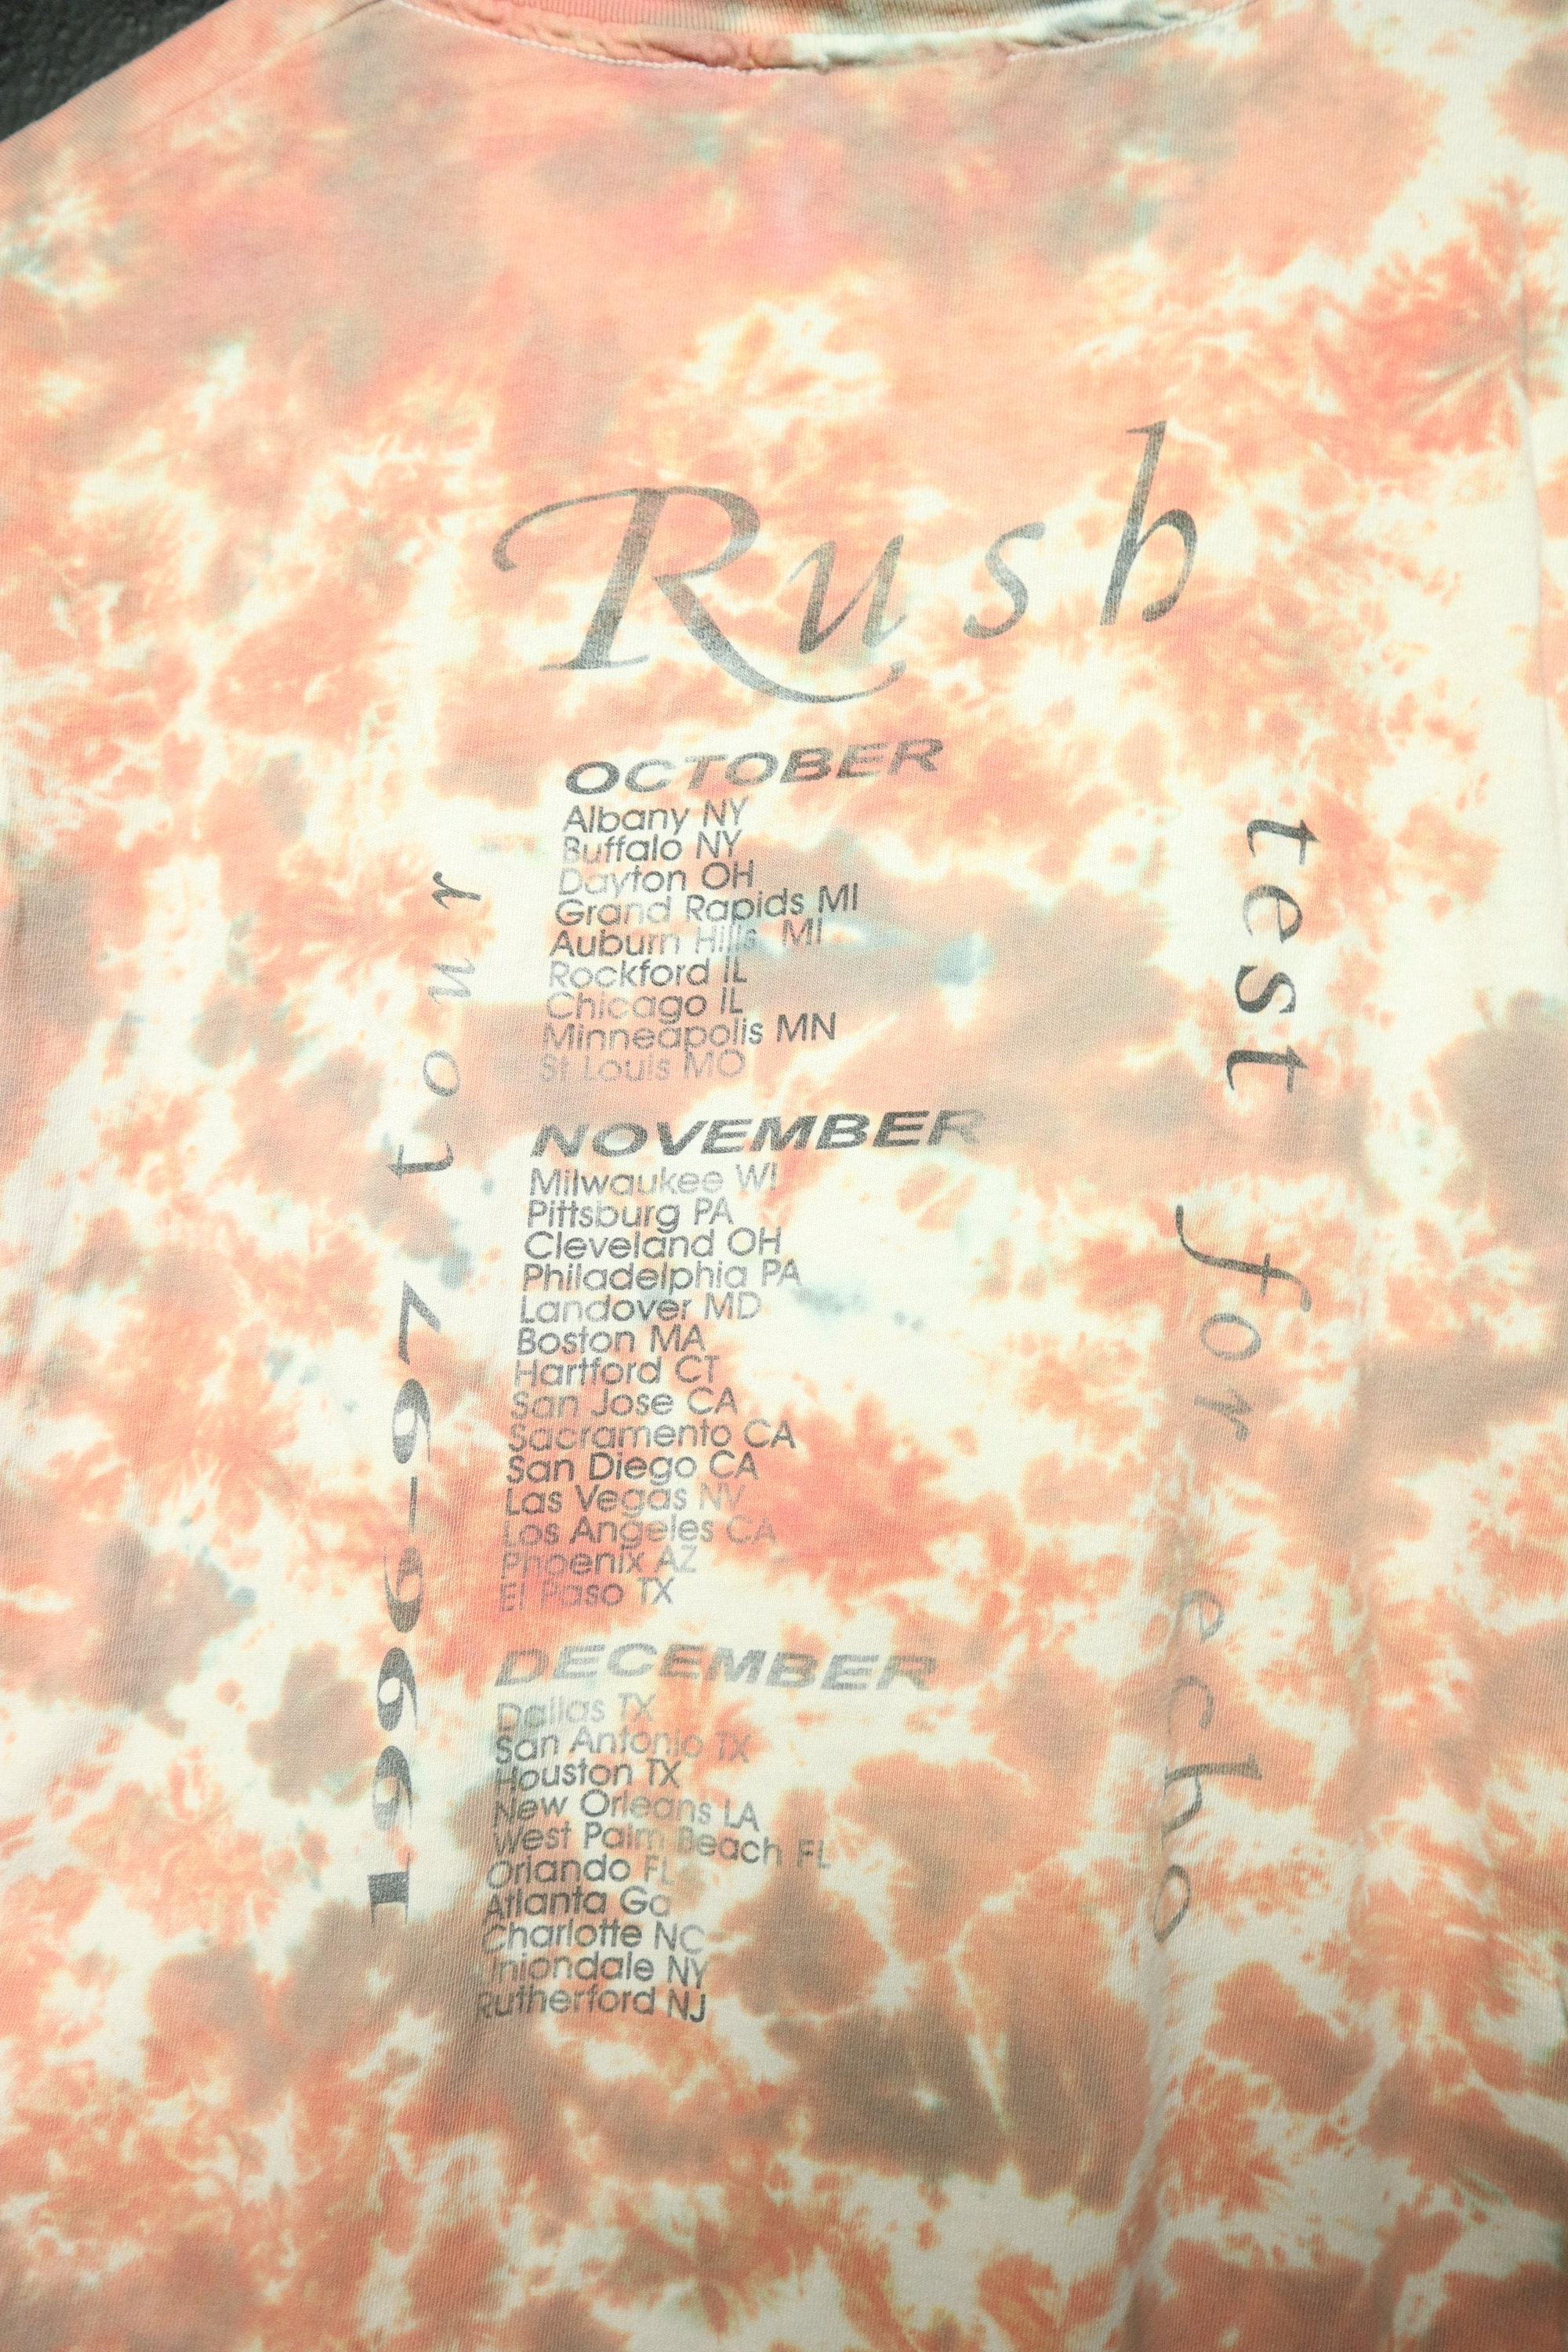 Rush
OCTOBER
Albany NY
Buffalo NY
Dayton OH
Grand Rapids MI
Auburn Hills MI
Rockford IL
Chicago IL
Minneapolis MN
St Louis MO
NOVEMBER
Milwaukee WI
Pittsburg PA
Cleveland OH
Philadelphia PA
Landover MD
Boston MA
Hartford CT
San Jose CA
Sacramento CA
San Diego CA
Las Vegas NV
Los Angeles CA
Phoenix AZ
El Paso TX
DECEMBER
Dallas TX
San Antonio TX
Houston TX
New Orleans LA
West Palm Beach FL
Orlando FL
Atlanta Ga
Charlotte NC
Uniondale NY
Rutherford NJ
test for echo
1996-97 tour